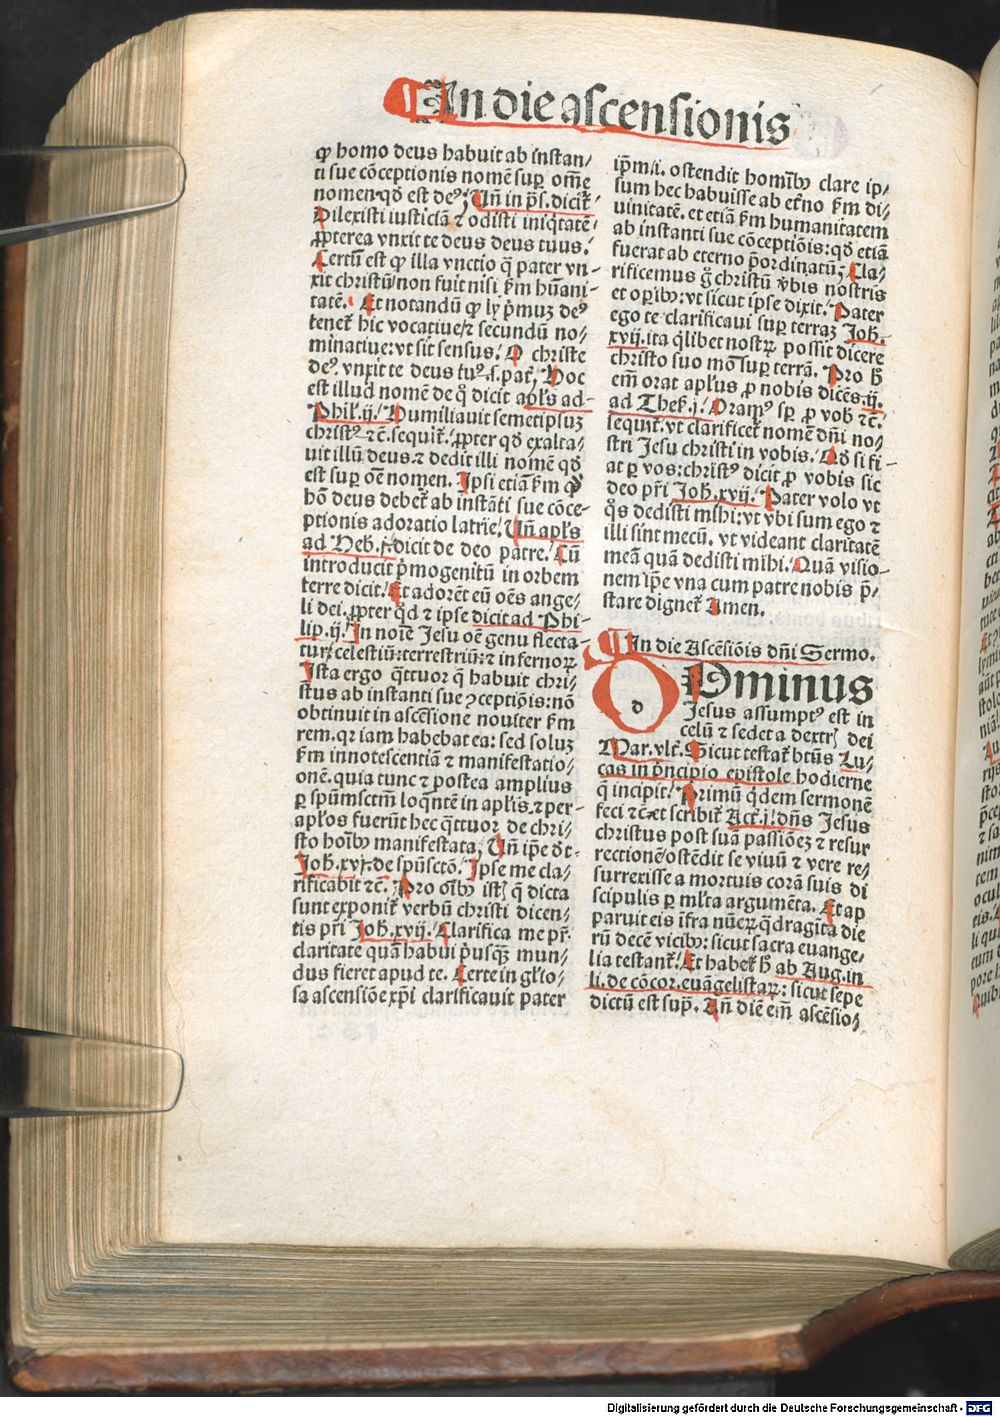 In die ascensionis
qꝫ homo deus habuit ab instan/
ti sue cōceptionis nomē suꝑ om̄e
nomen·qd̄ est deꝰ; Un̄ in p̄s. dicit᷑
Dilexisti iusticiā ⁊ odisti iniq̇tatē
ꝓpterea vnxit te deus deus tuus.
Certū est qꝫ illa vnctio q̄ pater vn-
xit christū/non fuit nisi ẜm hūani-
tatē. Et notandū qꝫ ly p̄muꝫ deꝰ
tenet᷑ hic vocatiue/⁊ secundū no/
minatiue: vt sit sensus. O christe
deꝰ. vnxit te deus tuꝰ.s.pat᷑; Hoc
est illud nomē de q̊ dicit apl̄s ad-
Phil̓.ij. Humiliauit semetipsuꝫ
christꝰ ⁊c̄. sequit᷑. ꝓpter qd̄ exalta/
uit illū deus.⁊ dedit illi nomē qd̄
est suꝑ oē nomen. Ipsi etiā ẜm qꝫ
hō deus debet᷑ ab instāti sue cōce-
ptionis adoratio latrie. Un̄ apl̄s
ad Heb.j. dicit de deo patre. Cū
introducit p̄mogenitū in orbem
terre dicit. Et adorēt eū oēs ange/
li dei. ꝓpter qd̄ ⁊ ipse dicit ad Phi
lip.ij. In noīe Jesu oē genu flecta-
tur/ celestiū: terrestriū: ⁊ infernoꝝ
Ista ergo q̇ttuor q̄ habuit chri/
stus ab instanti sue ꝯceptiōis: nō
obtinuit in ascēsione nouiter ẜm
rem. qr iam habebat ea: sed soluꝫ
ẜm innotescentiā ⁊ manifestatio/
onē. quia tunc ⁊ postea amplius
ꝑ spūmsctm̄ loq̄ntē in apl̄is.⁊ per-
apl̄os fuerūt hec q̇ttuor de chri/
sto hoīb⁹ manifestata; Un̄ ip̄e d̄t-
Joh̄.xvj. de spūsctō. Ipse me cla/
rificabit ⁊c̄. Pro oīb⁹ istꝭ q̄ dicta
sunt exponit᷑ verbū christi dicen/
tis pr̄i Joh̄.xvij. Clarifica me pr̄·
claritate quā habui p̄usq̄ꝫ mun/
dus fieret apud te. Certe in gl̄io/
sa ascensiōe xp̄i clarificauit pater
ip̄m/.i. ostendit homīb⁹ clare ip/
sum hec habuisse ab et̓no ẜm di/
uinitatē. et etiā ẜm humanitatem
ab instanti sue cōceptiōis: qd̄ etiā
fuerat ab eterno p̄ordinatū; Cla/
rificemus g̊ christū v̓bis nostris
et oꝑib⁹: vt sicut ipse dixit. Pater
ego te clarificaui suꝑ terraꝫ Joh̄.
xvij. ita q̄libet nostꝝ possit dicere
christo suo mō suꝑ terrā. Pro h̄
em̄ orat apl̄us ꝓ nobis dicēs.ij.
ad Thes̓.j. Oramꝰ sꝑ ꝓ vob̓ ⁊c̄.
sequit᷑. vt clarificet᷑ nomē dn̄i no/
stri Jesu christi in vobis. Qd̄ si fi-
at ꝑ vos: christꝰ dicit ꝓ vobis sic
deo pr̄i Joh̄.xvij. Pater volo vt
q̊s dedisti mihi: vt vbi sum ego ⁊
illi sint mecū. vt videant claritatē
meā quā dedisti mihi. Quā visio-
nem ip̄e vna cum patre nobis p̄/
stare dignet᷑ Amen.
In die Ascēsiōis dn̄i Sermo.
DOminus
d
Jesus assumptꝰ est in
celū ⁊ sedet a dextrꝭ dei
Mar.vlt̓. Sicut testat᷑ btūs Lu/
cas in p̄ncipio epistole hodierne
q̄ incipit. Primū q̇dem sermonē
feci ⁊c̄. et scribit᷑ Act̓.j. dn̄s Jesus
christus post suā passiōeꝫ ⁊ resur
rectionē/ostēdit se viuū ⁊ vere re/
surrexisse a mortuis corā suis di
scipulis ꝑ ml̓ta argumēta. Et ap
paruit eis īfra nūeꝝ q̇dragita die
rū decē vicib⁹: sicut sacra euange/
lia testant᷑. Et habet᷑ h̄ ab Aug. in
li. de cōcor. euāgelistaꝝ: sicut sepe
dictū est sup̄. An̄ diē em̄ ascēsio/
Digitalisierung gefördert durch die Deutsche Forschungsgemeinschaft - DFG